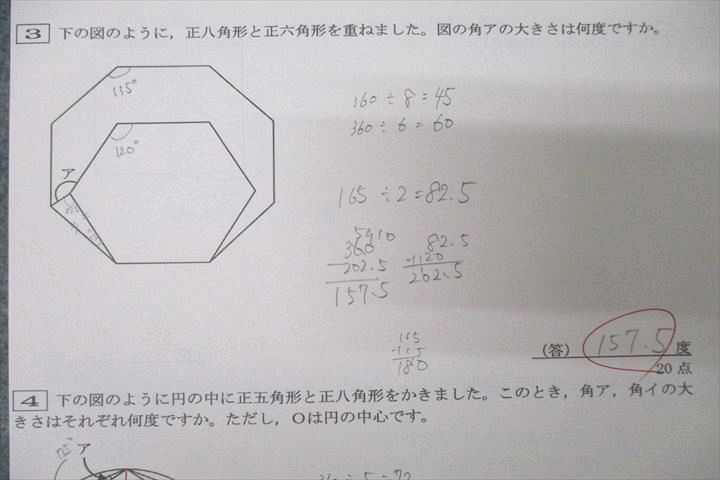 3 下の図のように，正八角形と正六角形を重ねました。図の角アの大きさは何度ですか。
135°
120°
ア
360÷8=45
360÷6=60
165÷2=82.5
5910
360
-202.5
157.5
82.5
+120
202.5
165
180
(答) 157.5 度
20点
4 下の図のように円の中に正五角形と正八角形をかきました。このとき，角ア，角イの大
きさはそれぞれ何度ですか。ただし，Oは円の中心です。
ア
360÷5=72